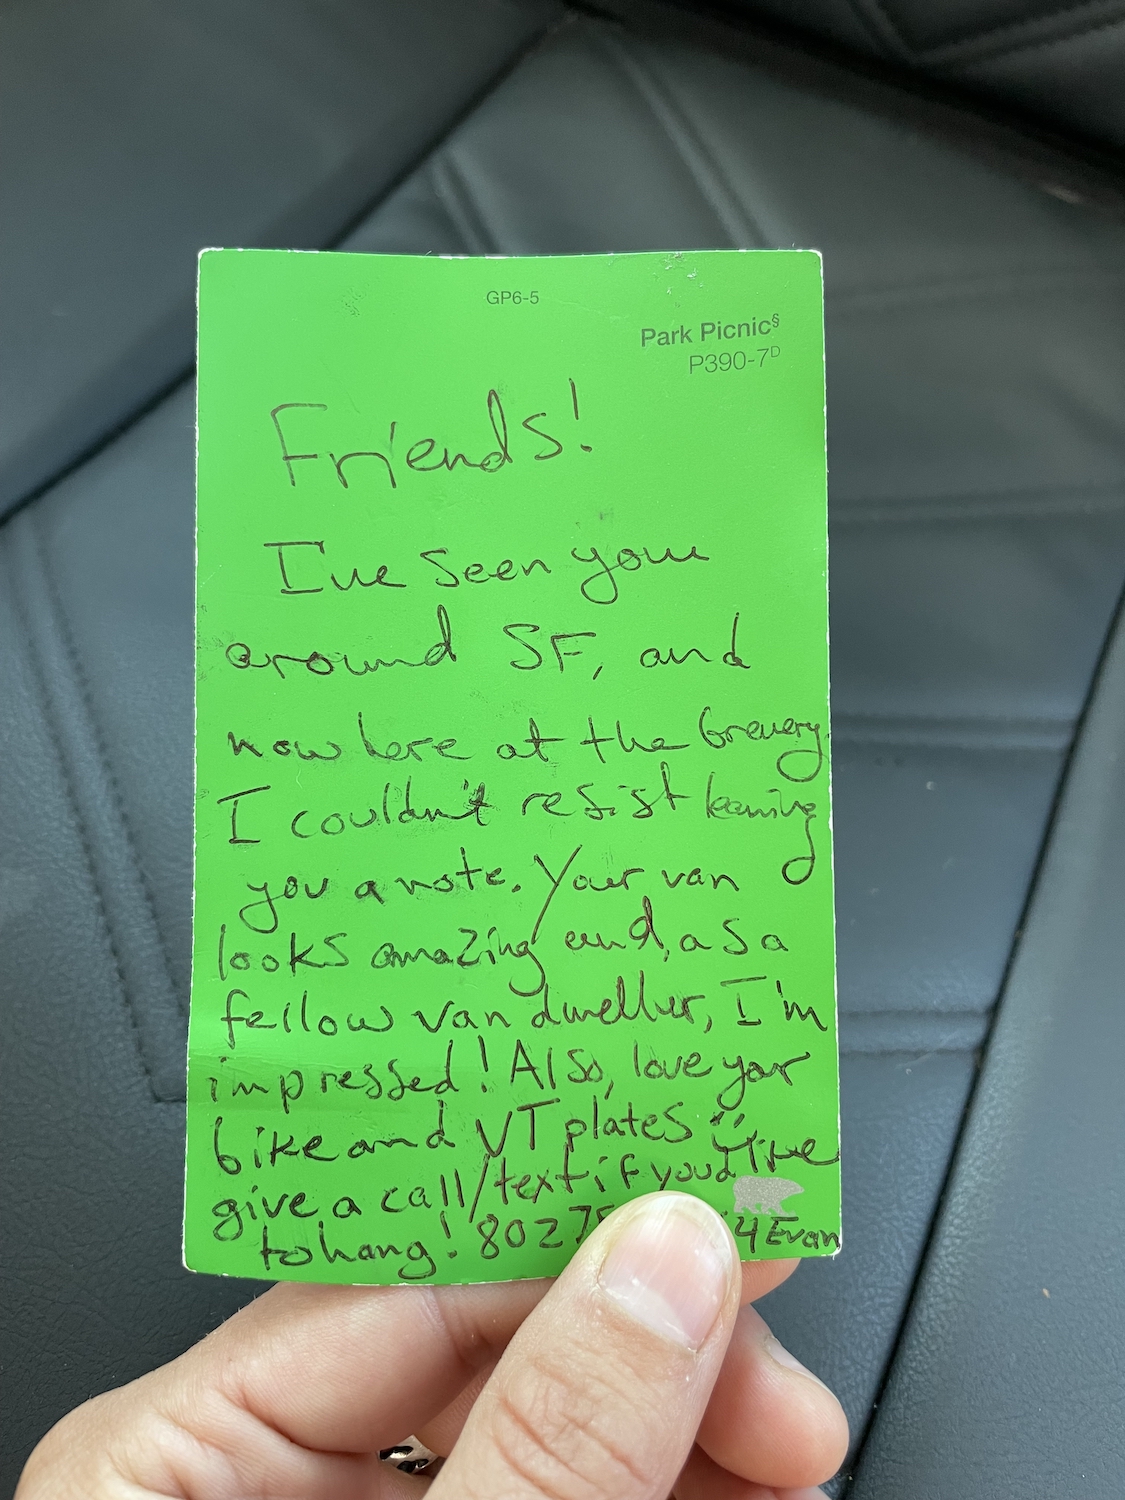 GP6-5
Park Picnic§
P390-7D
Friends!
I've seen you
around SF, and
now here at the brewery.
I couldn't resist leaving
you a note. Your van
looks amazing and, as a
fellow van dweller, I'm
impressed! Also, love your
bike and VT plates
give a call/text if you'd like
to hang! 8027 4 Evan